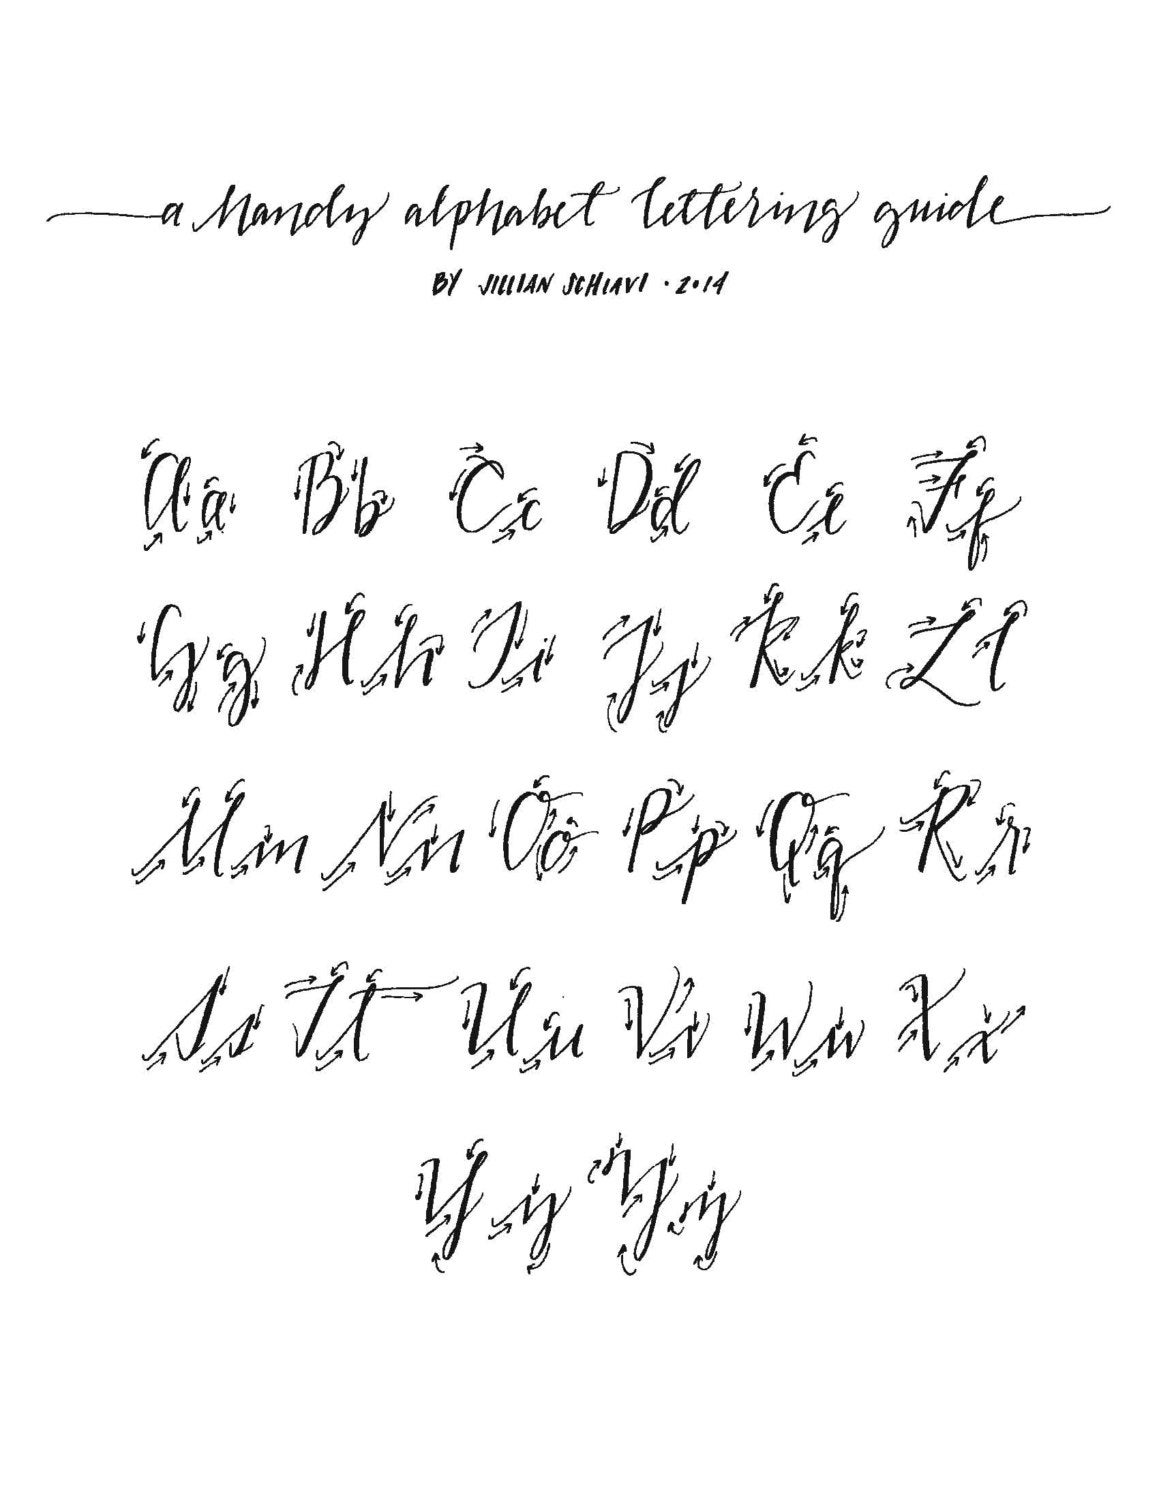 a Mandy alphabet lettering guide
BY JILLIAN SCHIAVI · 2014
Aa Bb Cc Dd Ee Ff
Gg Hh Ii Jj Kk Ll
Mm Nn Oo Pp Qq Rr
Ss Tt Uu Vv Ww Xx
Yy Zz